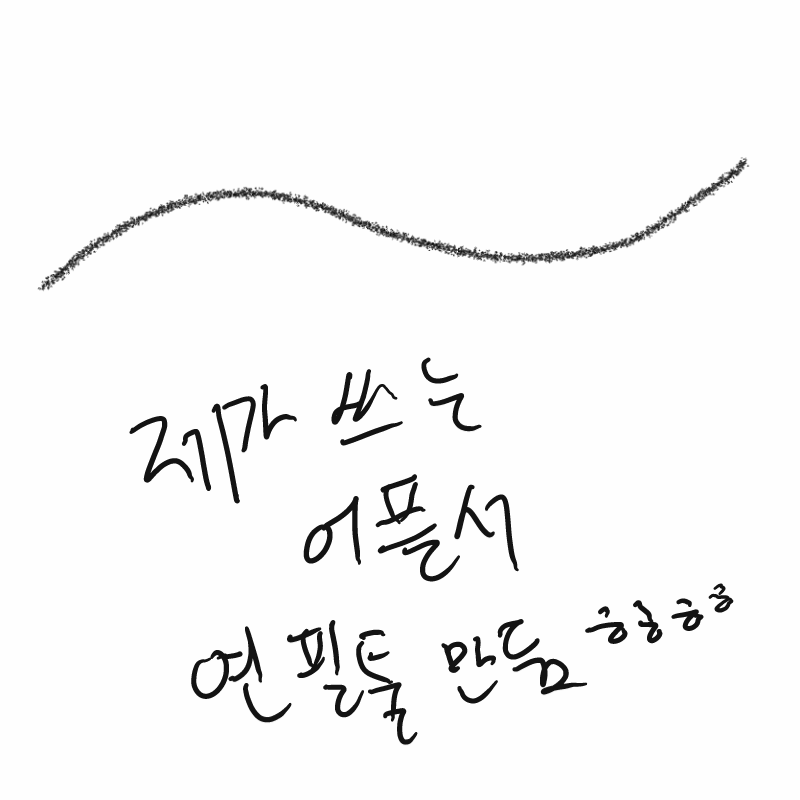 제가 쓰는
어플서
연필툴 만듬 ㅎㅎㅎㅎ